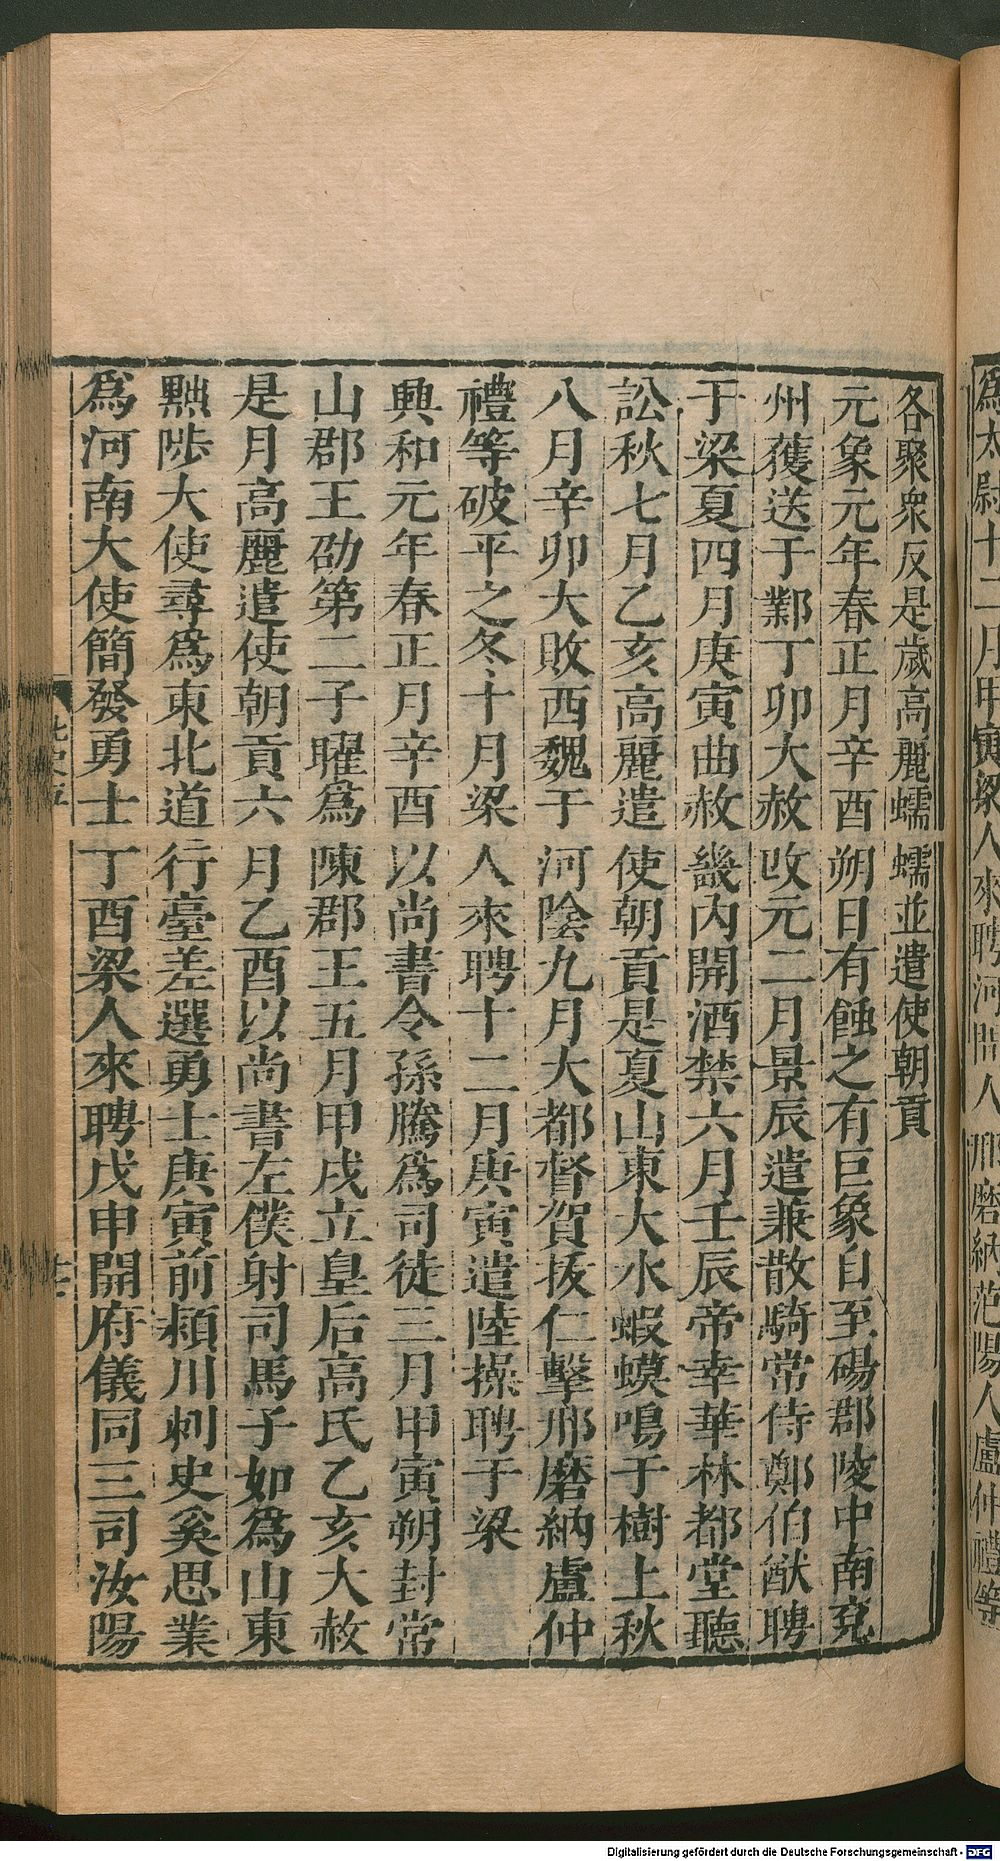 爲太尉十二月甲寅梁人來聘河間人邢磨納范陽人盧仲禮等
各聚衆反是歲高麗蠕蠕並遣使朝貢
元象元年春正月辛酉朔日有蝕之有巨象自至碭郡陂中南兗
州獲送于鄴丁卯大赦改元二月景辰遣兼散騎常侍鄭伯猷聘
于梁夏四月庚寅曲赦畿內開酒禁六月壬辰帝幸華林都堂聽
訟秋七月乙亥高麗遣使朝貢是夏山東大水蝦蟆鳴于樹上秋
八月辛卯大敗西魏于河陰九月大都督賀拔仁擊邢磨納盧仲
禮等破平之冬十月梁人來聘十二月庚寅遣陸操聘于梁
興和元年春正月辛酉以尚書令孫騰爲司徒三月甲寅朔封常
山郡王劭第二子曜爲陳郡王五月甲戌立皇后高氏乙亥大赦
是月高麗遣使朝貢六月乙酉以尚書左僕射司馬子如爲山東
黜陟大使尋爲東北道行臺差選勇士庚寅前潁川刺史奚思業
爲河南大使簡發勇士丁酉梁人來聘戊申開府儀同三司汝陽
北史五
Digitalisierung gefördert durch die Deutsche Forschungsgemeinschaft - DFG